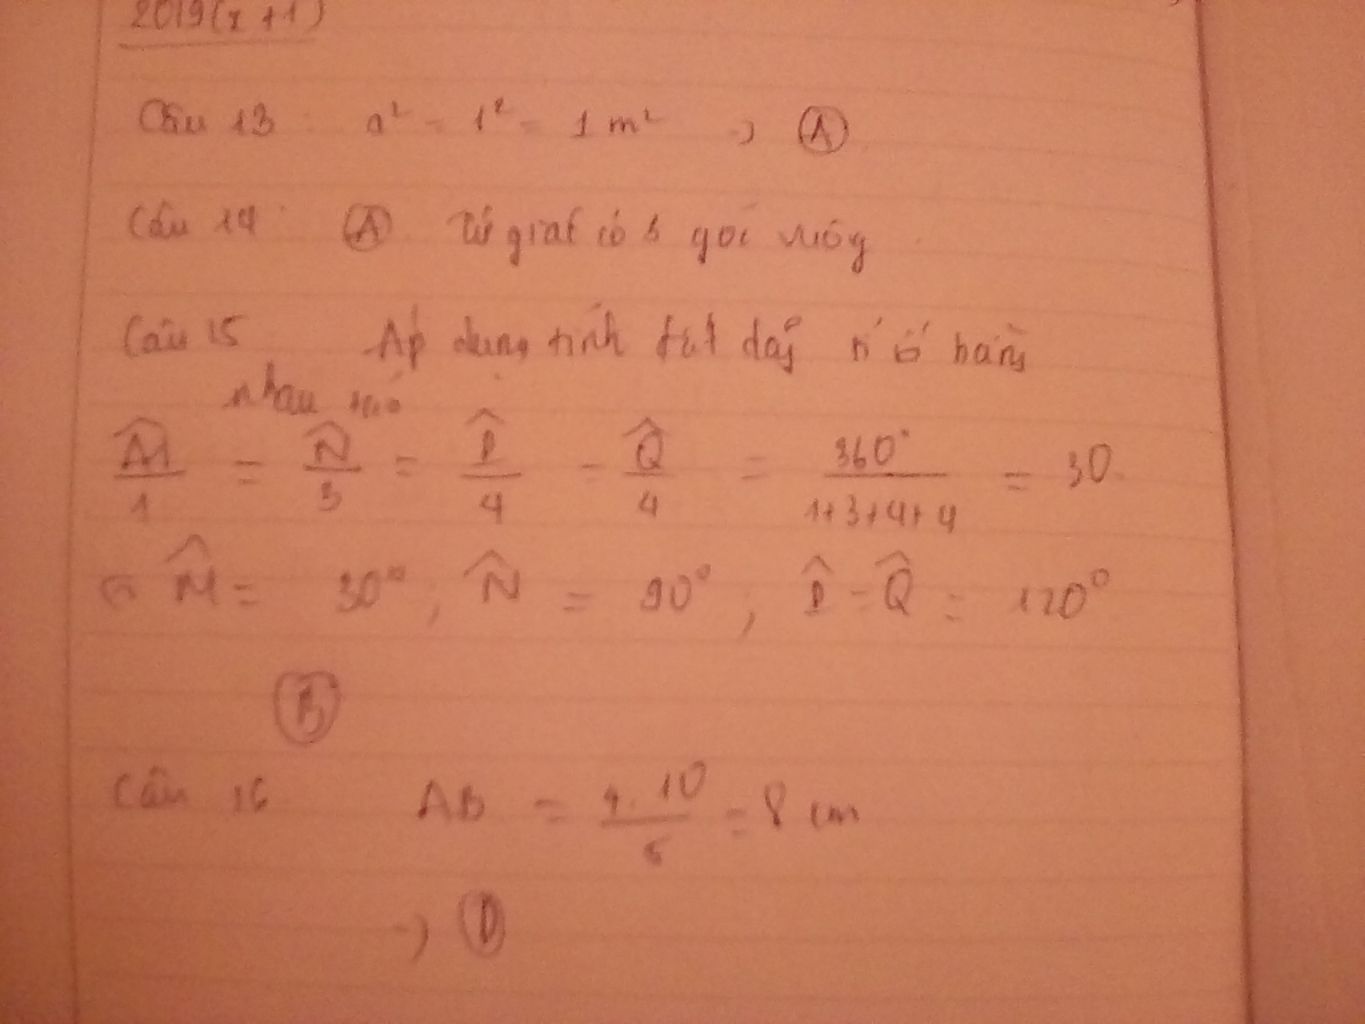 2019(x+1)
Câu 13 a² = 1² = 1 m² → Ⓐ
Câu 14 Ⓐ Tứ giác có 3 góc vuông
Câu 15 Áp dụng tính chất dãy tỉ số bằng
nhau
M̂/1 = N̂/3 = P̂/4 = Q̂/4 = 360°/1+3+4+4 = 30
M̂ = 30°, N̂ = 90°, P̂ = Q̂ = 120°
Ⓑ
Câu 16 AB = 4.10/5 = 8 cm
→ Ⓓ